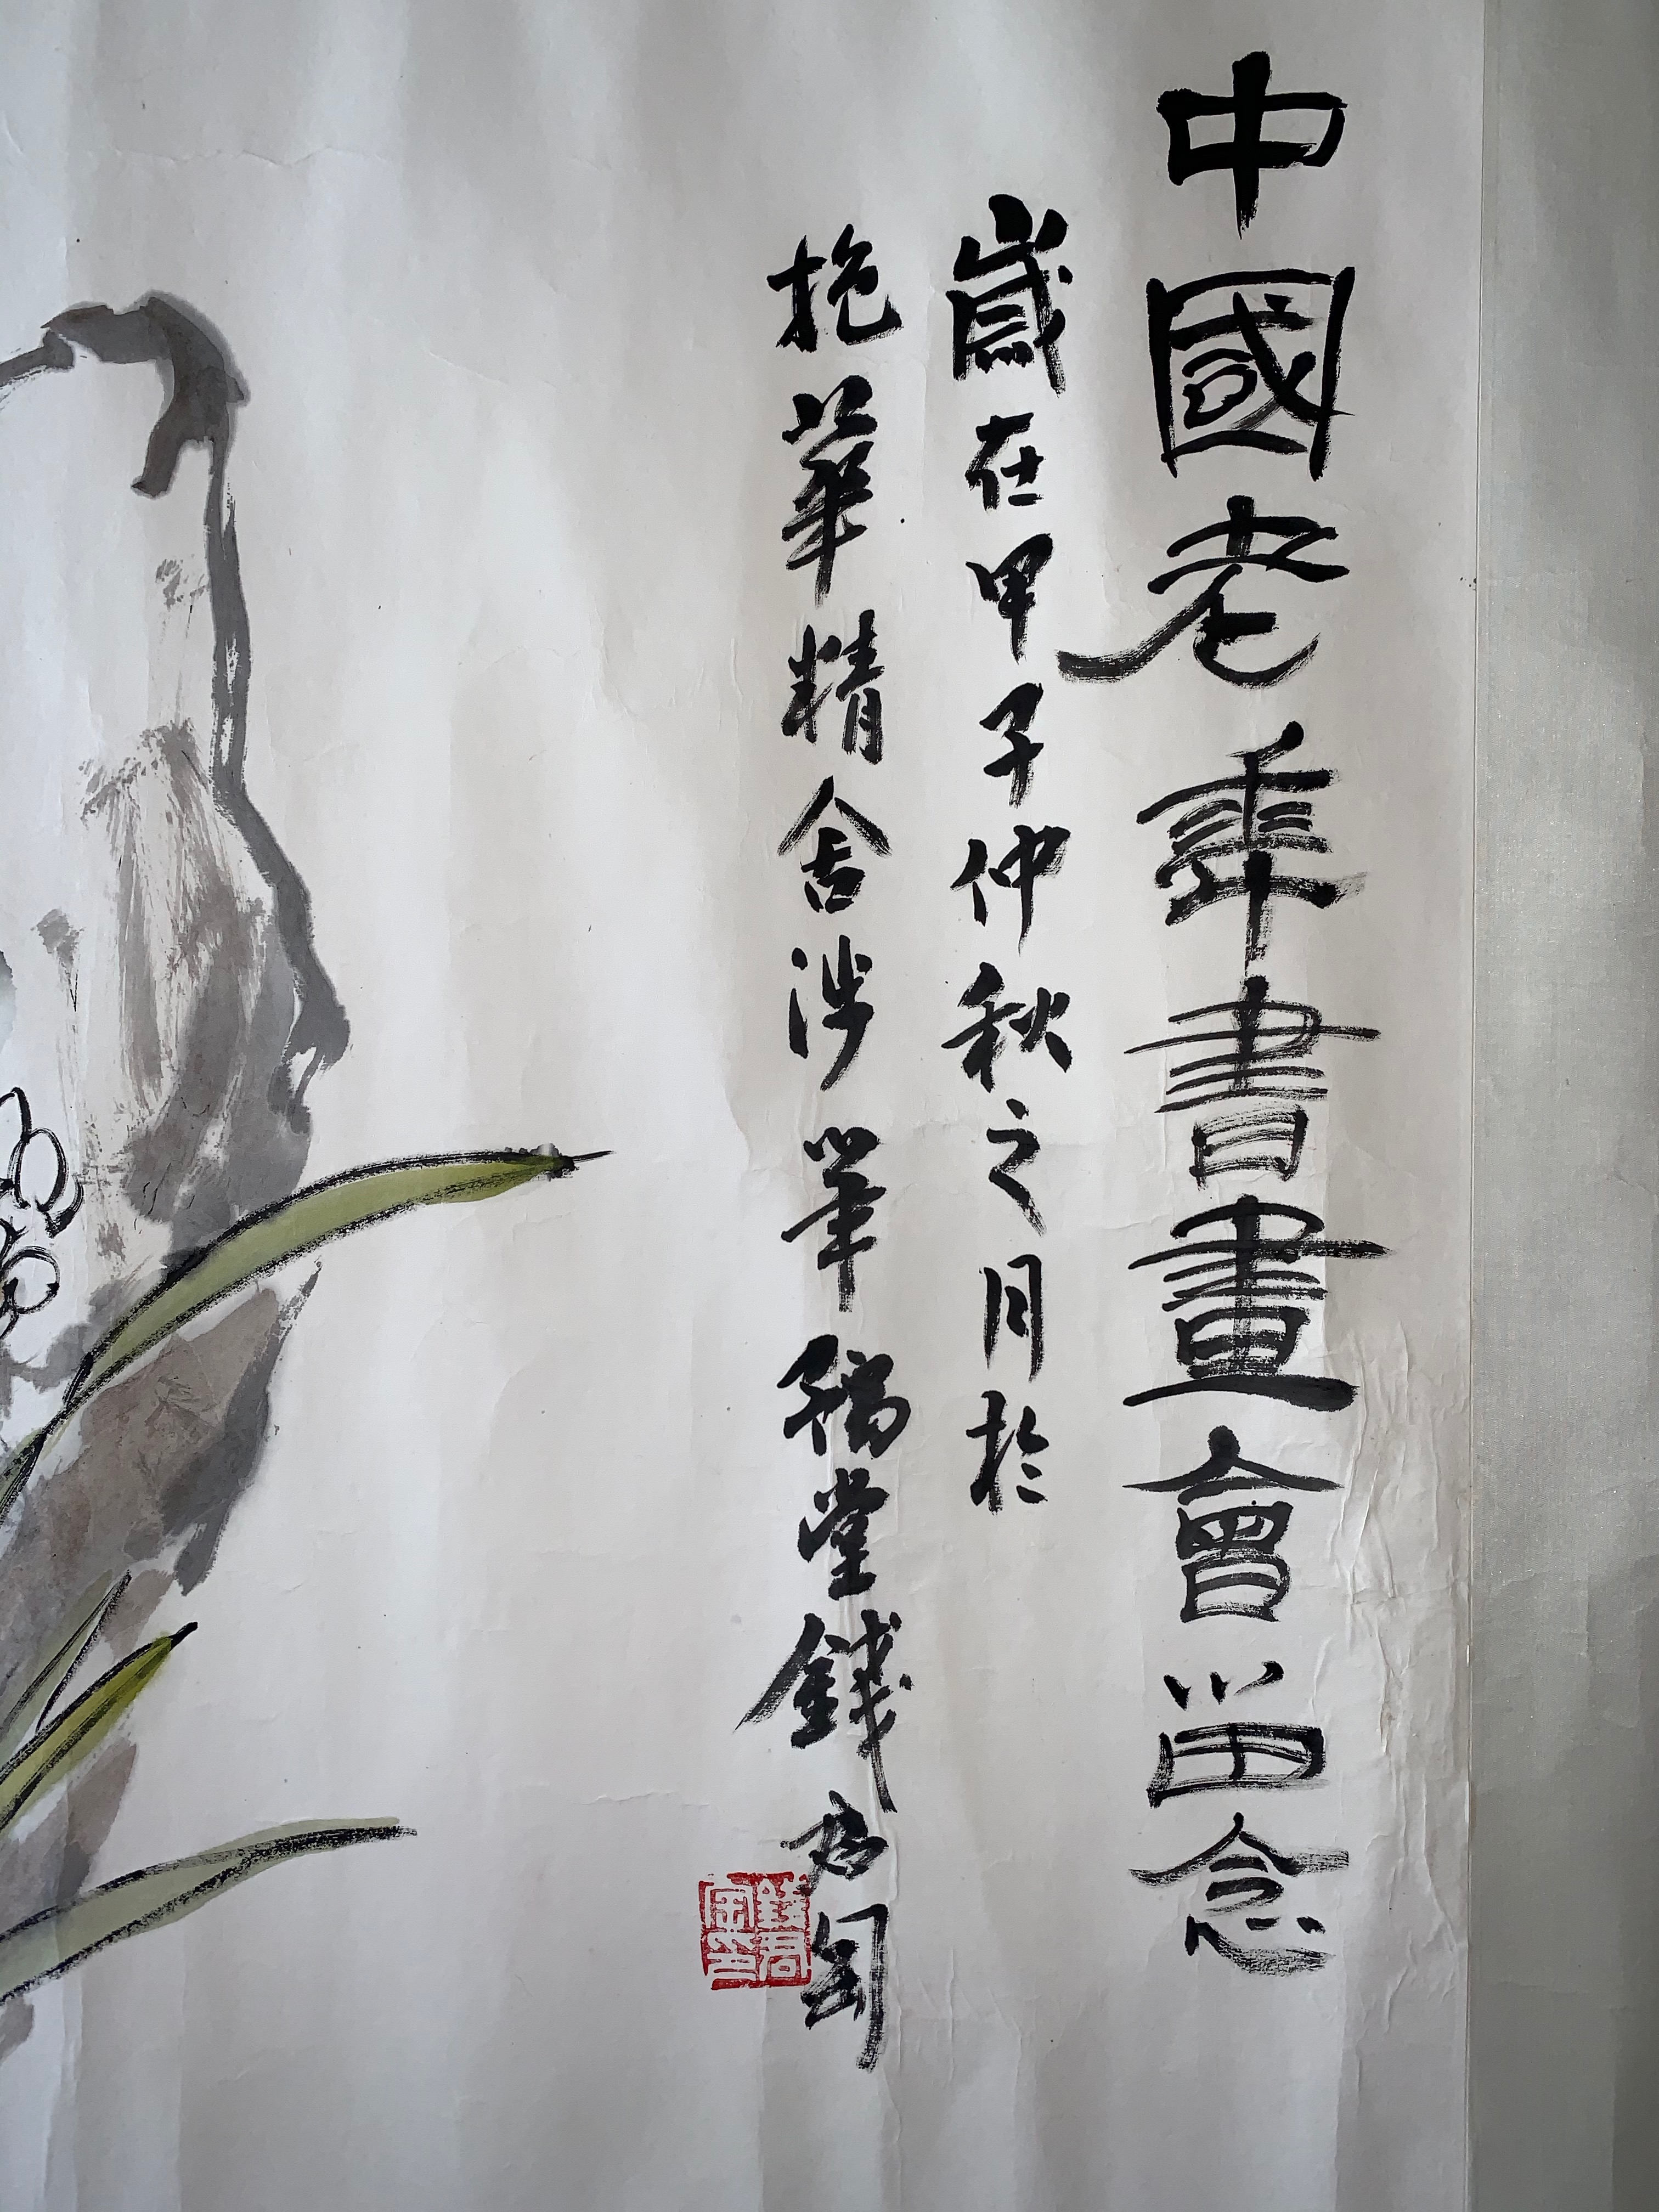 中國老年書畫會留念
歲在甲子仲秋之月於
抱華精舍涉筆 錢君匋
錢君匋印